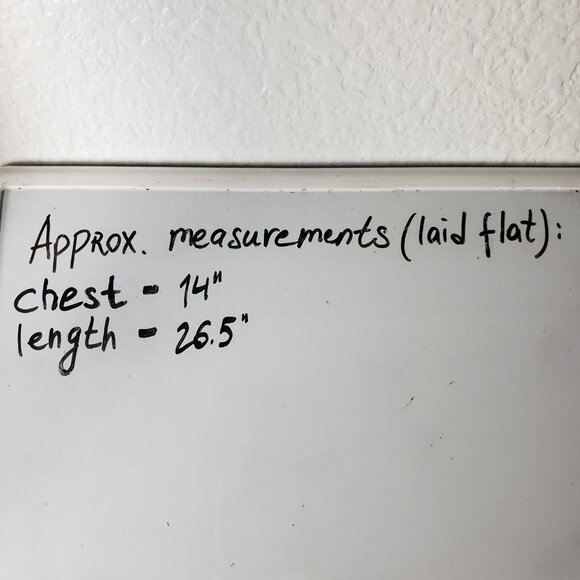 Approx. measurements (laid flat):
chest - 14"
length - 26.5"